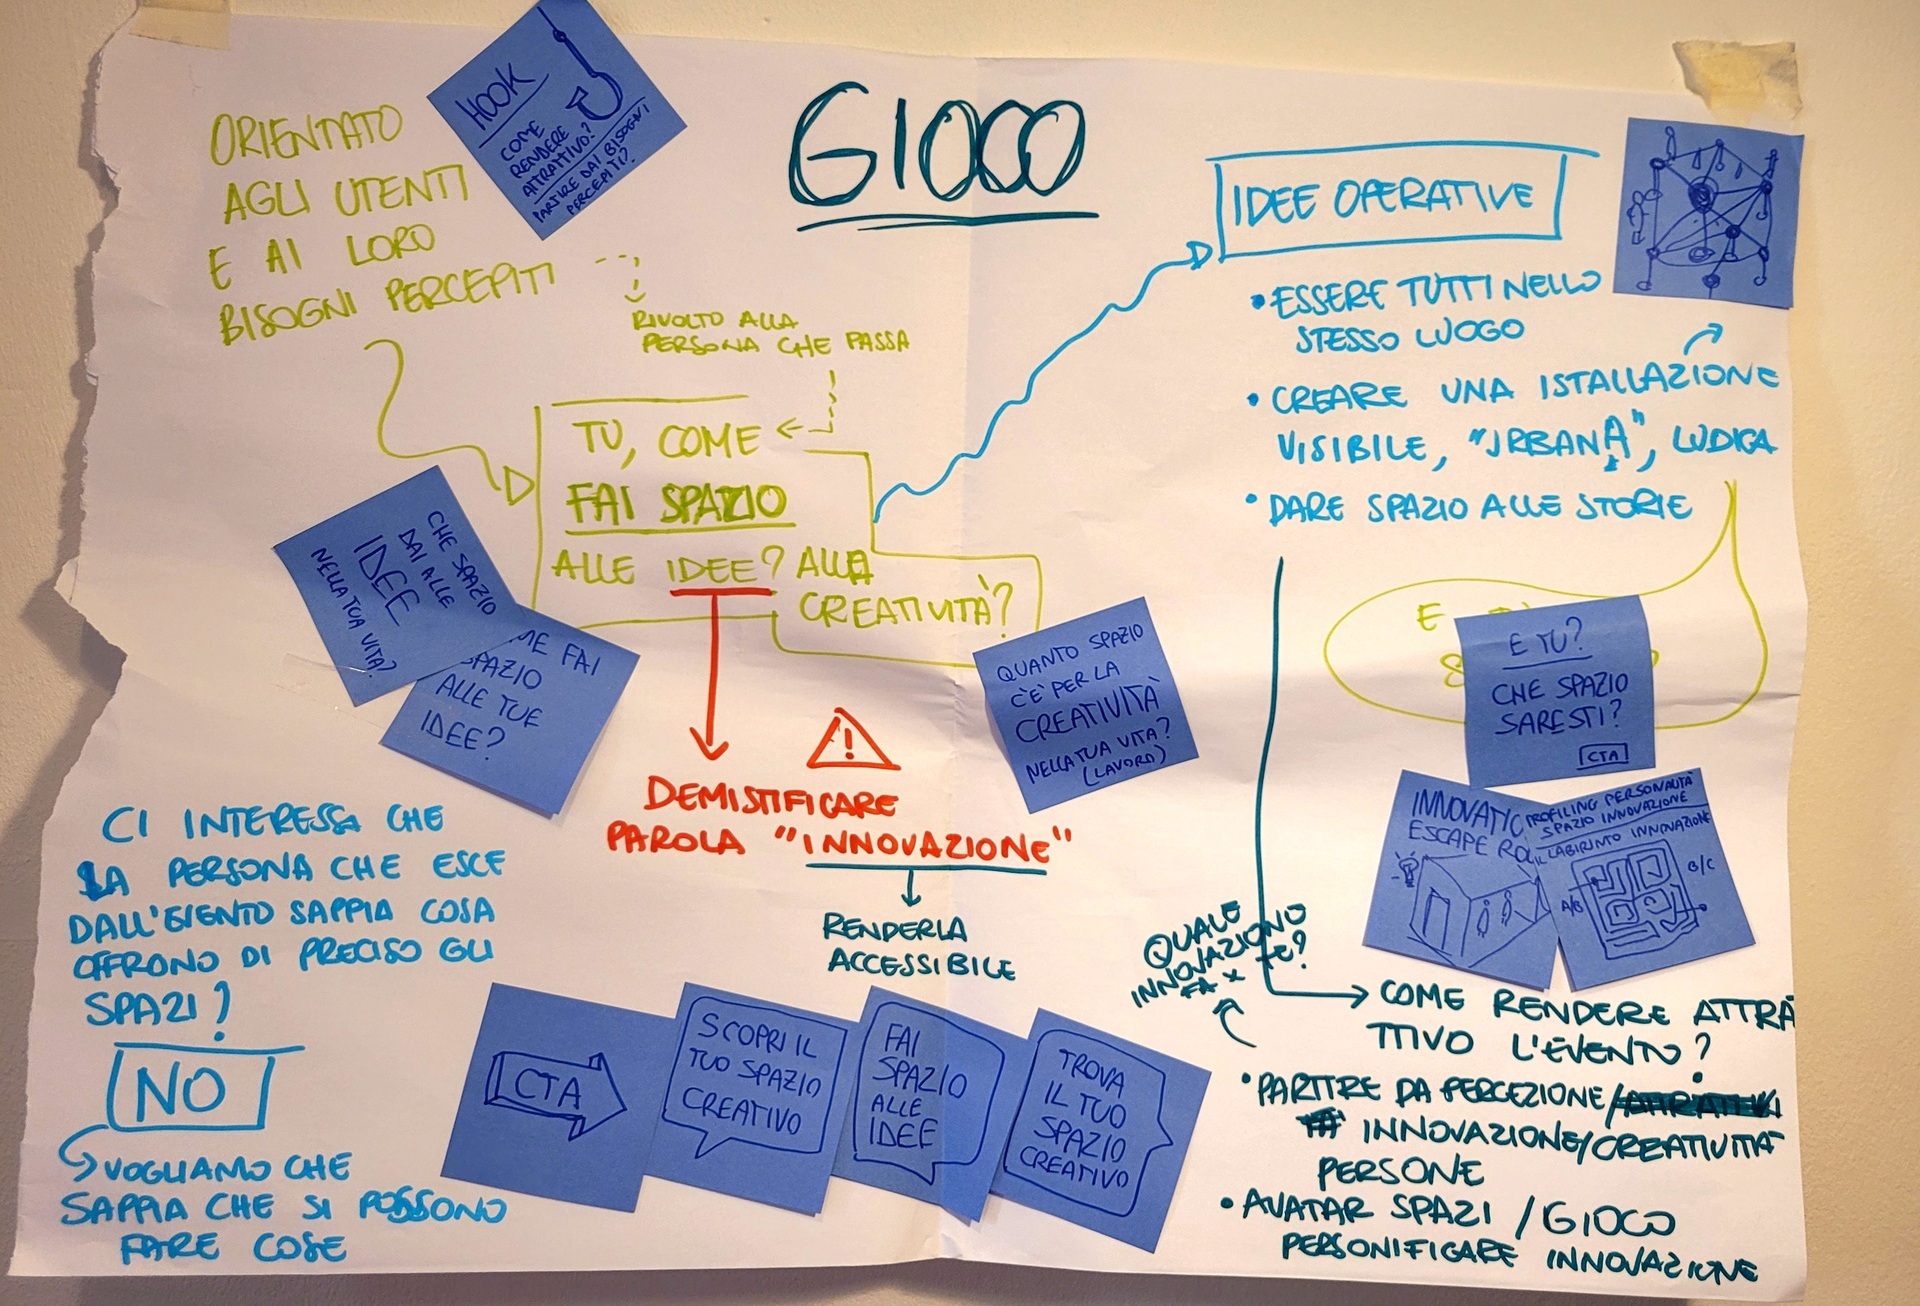 GIOCO
HOOK
COME
RENDERE
ATTRATTIVO?
PARTIRE DAI BISOGNI
PERCEPITI?
ORIENTATO
AGLI UTENTI
E AI LORO
BISOGNI PERCEPITI
RIVOLTO ALLA
PERSONA CHE PASSA
TU, COME
FAI SPAZIO
ALLE IDEE? ALLA
CREATIVITÀ?
CHE SPAZIO
DAI ALLE
IDEE
NELLA TUA VITA?
ME FAI
SPAZIO
ALLE TUE
IDEE?
QUANTO SPAZIO
C'E' PER LA
CREATIVITÀ
NELLA TUA VITA?
(LAVORO)
DEMISTIFICARE
PAROLA "INNOVAZIONE"
RENDERLA
ACCESSIBILE
CI INTERESSA CHE
LA PERSONA CHE ESCE
DALL'EVENTO SAPPIA COSA
OFFRONO DI PRECISO GLI
SPAZI?
NO
VOGLIAMO CHE
SAPPIA CHE SI POSSONO
FARE COSE
CTA
SCOPRI IL
TUO SPAZIO
CREATIVO
FAI
SPAZIO
ALLE
IDEE
TROVA
IL TUO
SPAZIO
CREATIVO
IDEE OPERATIVE
•ESSERE TUTTI NELLO
STESSO LUOGO
•CREARE UNA ISTALLAZIONE
VISIBILE, "URBANA", LUDICA
•DARE SPAZIO ALLE STORIE
E
S
E TU?
CHE SPAZIO
SARESTI?
CTA
INNOVATIO
ESCAPE RO
PROFILING PERSONALITÀ
SPAZIO INNOVAZIONE
IL LABIRINTO INNOVAZIONE
A/B
B/C
QUALE
INNOVAZIONO
FA X TE?
COME RENDERE ATTRA
TTIVO L'EVENTO?
•PARTIRE DA PERCEZIONE/
INNOVAZIONE/CREATIVITÀ
PERSONE
•AVATAR SPAZI / GIOCO
PERSONIFICARE INNOVAZIONE